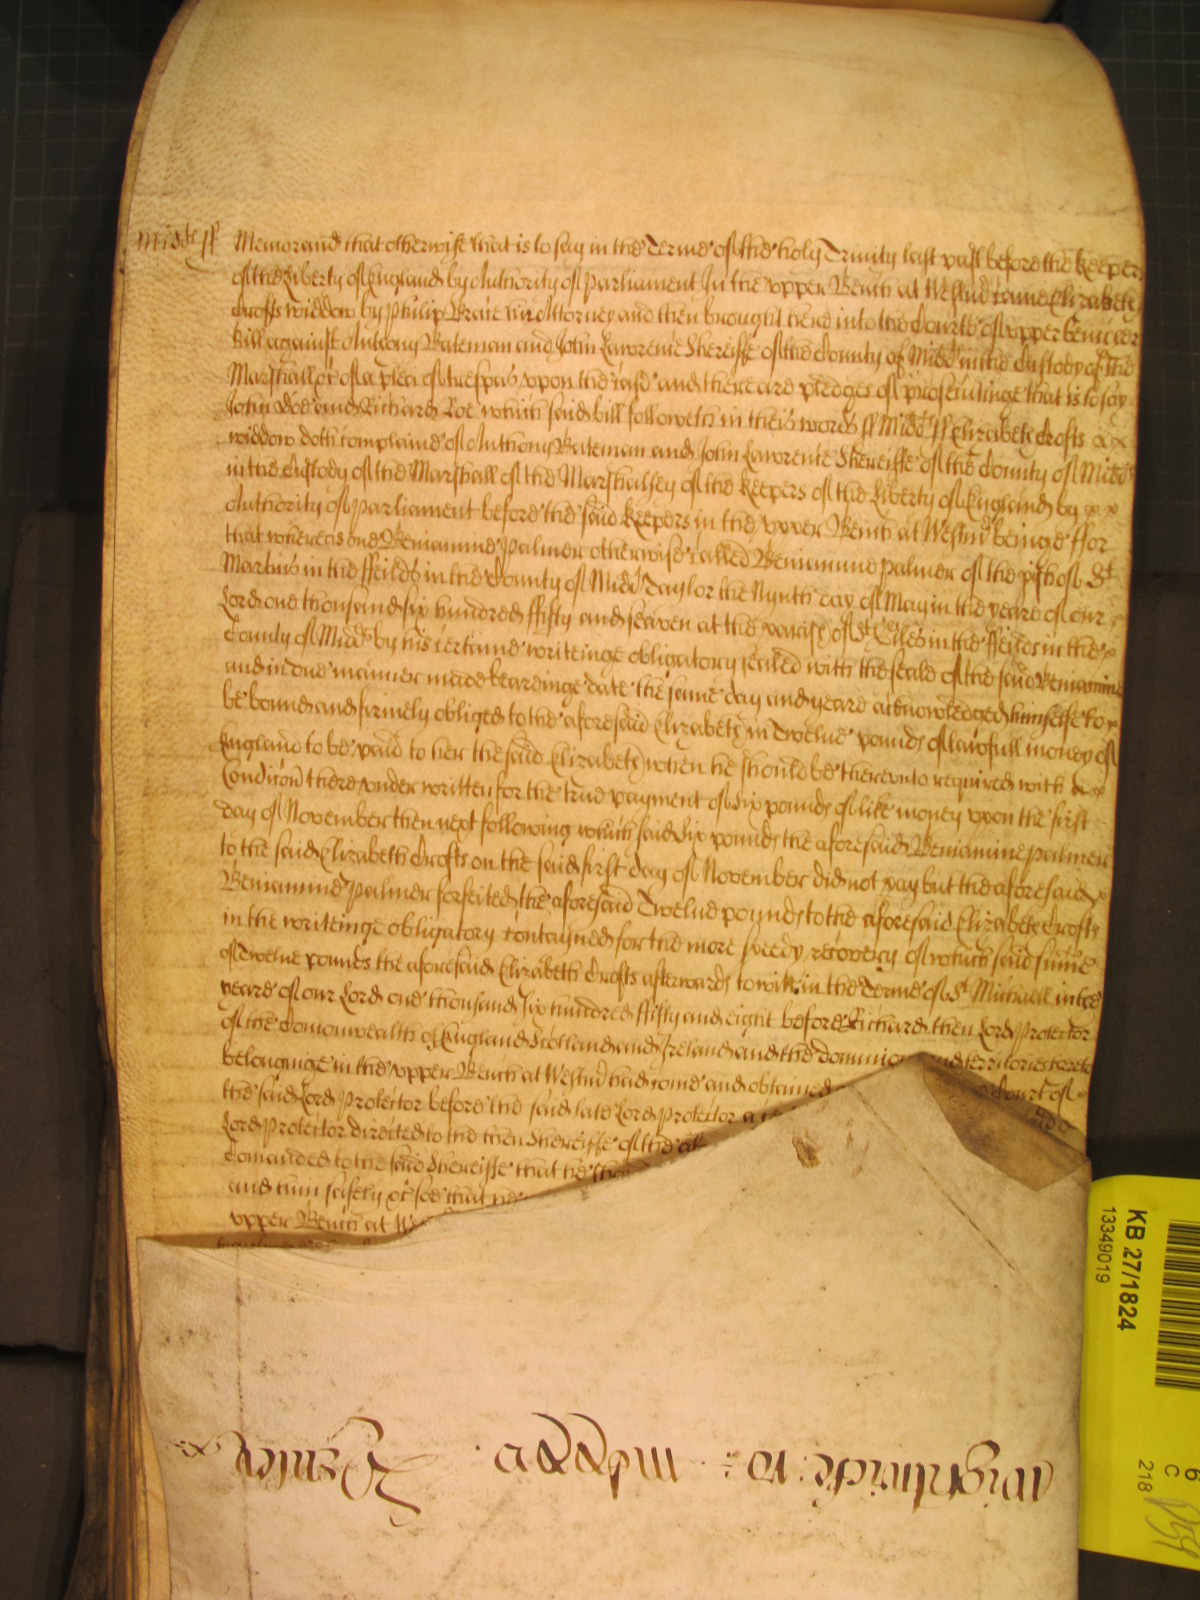 Midds ss Memorand that otherwise that is to say in the Terme of the holy Trinity last past before the Keepers
of the Liberty of England by Authority of Parliament In the vpper Bench at Westmr came Elizabeth
Crofts widdow by Philip her Attorney and then brought here into the Courte of vpper bench her
bill against Anthony Bateman and John Lawrence Shereiffe of the County of Midds in the Custody of the
Marshall &c of a plea of trespas vpon the case and there are pledges of prosecutinge that is to say
John Doe and Richard Roe which said bill followeth in theis words ss Midds ss Elizabeth Crofts x x
widdow doth complaine of Anthony Bateman and John Lawrence Shereiffe of the County of Midds
in the Custody of the Marshall of the Marshalsey of the Keepers of the Liberty of England by x x
Authority of Parliament before the said Keepers in the vpper Bench at Westmr beinge ffor
that whereas one Beniamine Palmer otherwise called Beniamine Palmer of the pish of St
Martins in the ffeilds in the County of Midds Taylor the Nynth day of May in the yeare of our
Lord one thousand six hundred ffifty and seaven at the parish of St Giles in the ffeilds in the x
County of Midds by his certaine writeinge obligatory sealed with the seale of the said Beniamine
and in due manner made beareinge date the same day and yeare acknowledged himselfe to x
be bound and firmely obliged to the aforesaid Elizabeth in Twelue pounds of lawfull money of
England to be paid to her the said Elizabeth when he should be therevnto required with x
Condicon there vnder written for the true payment of six pounds of like money vpon the first
day of November then next following which said six pounds the aforesaid Beniamine Palmer
to the said Elizabeth Crofts on the said first day of November did not pay but the aforesaid x
Beniamine Palmer forfeited the aforesaid Twelue pounds to the aforesaid Elizabeth Crofts
in the writeinge obligatory contayned for the more speedy recovery of which said summe
of Twelue pounds the aforesaid Elizabeth Crofts afterwards to wit in the Terme of St Michaell in the
yeare of our Lord one thousand six hundred ffifty and eight before Richard then Lord Protector
of the Comonwealth of England Scotland and Ireland and the dominions and territories thereto
belonginge in the vpper Bench at Westmr had come and obtained Court of
the said Lord Protector before the said late Lord Protector a
Lord Protector directed to the then Shereiffe of the
comanded to the said Shereiffe that he
and him safely &c soe that he
vpper Bench at
Wightwicke: ro
KB 27/1824
13349019
6
C
218